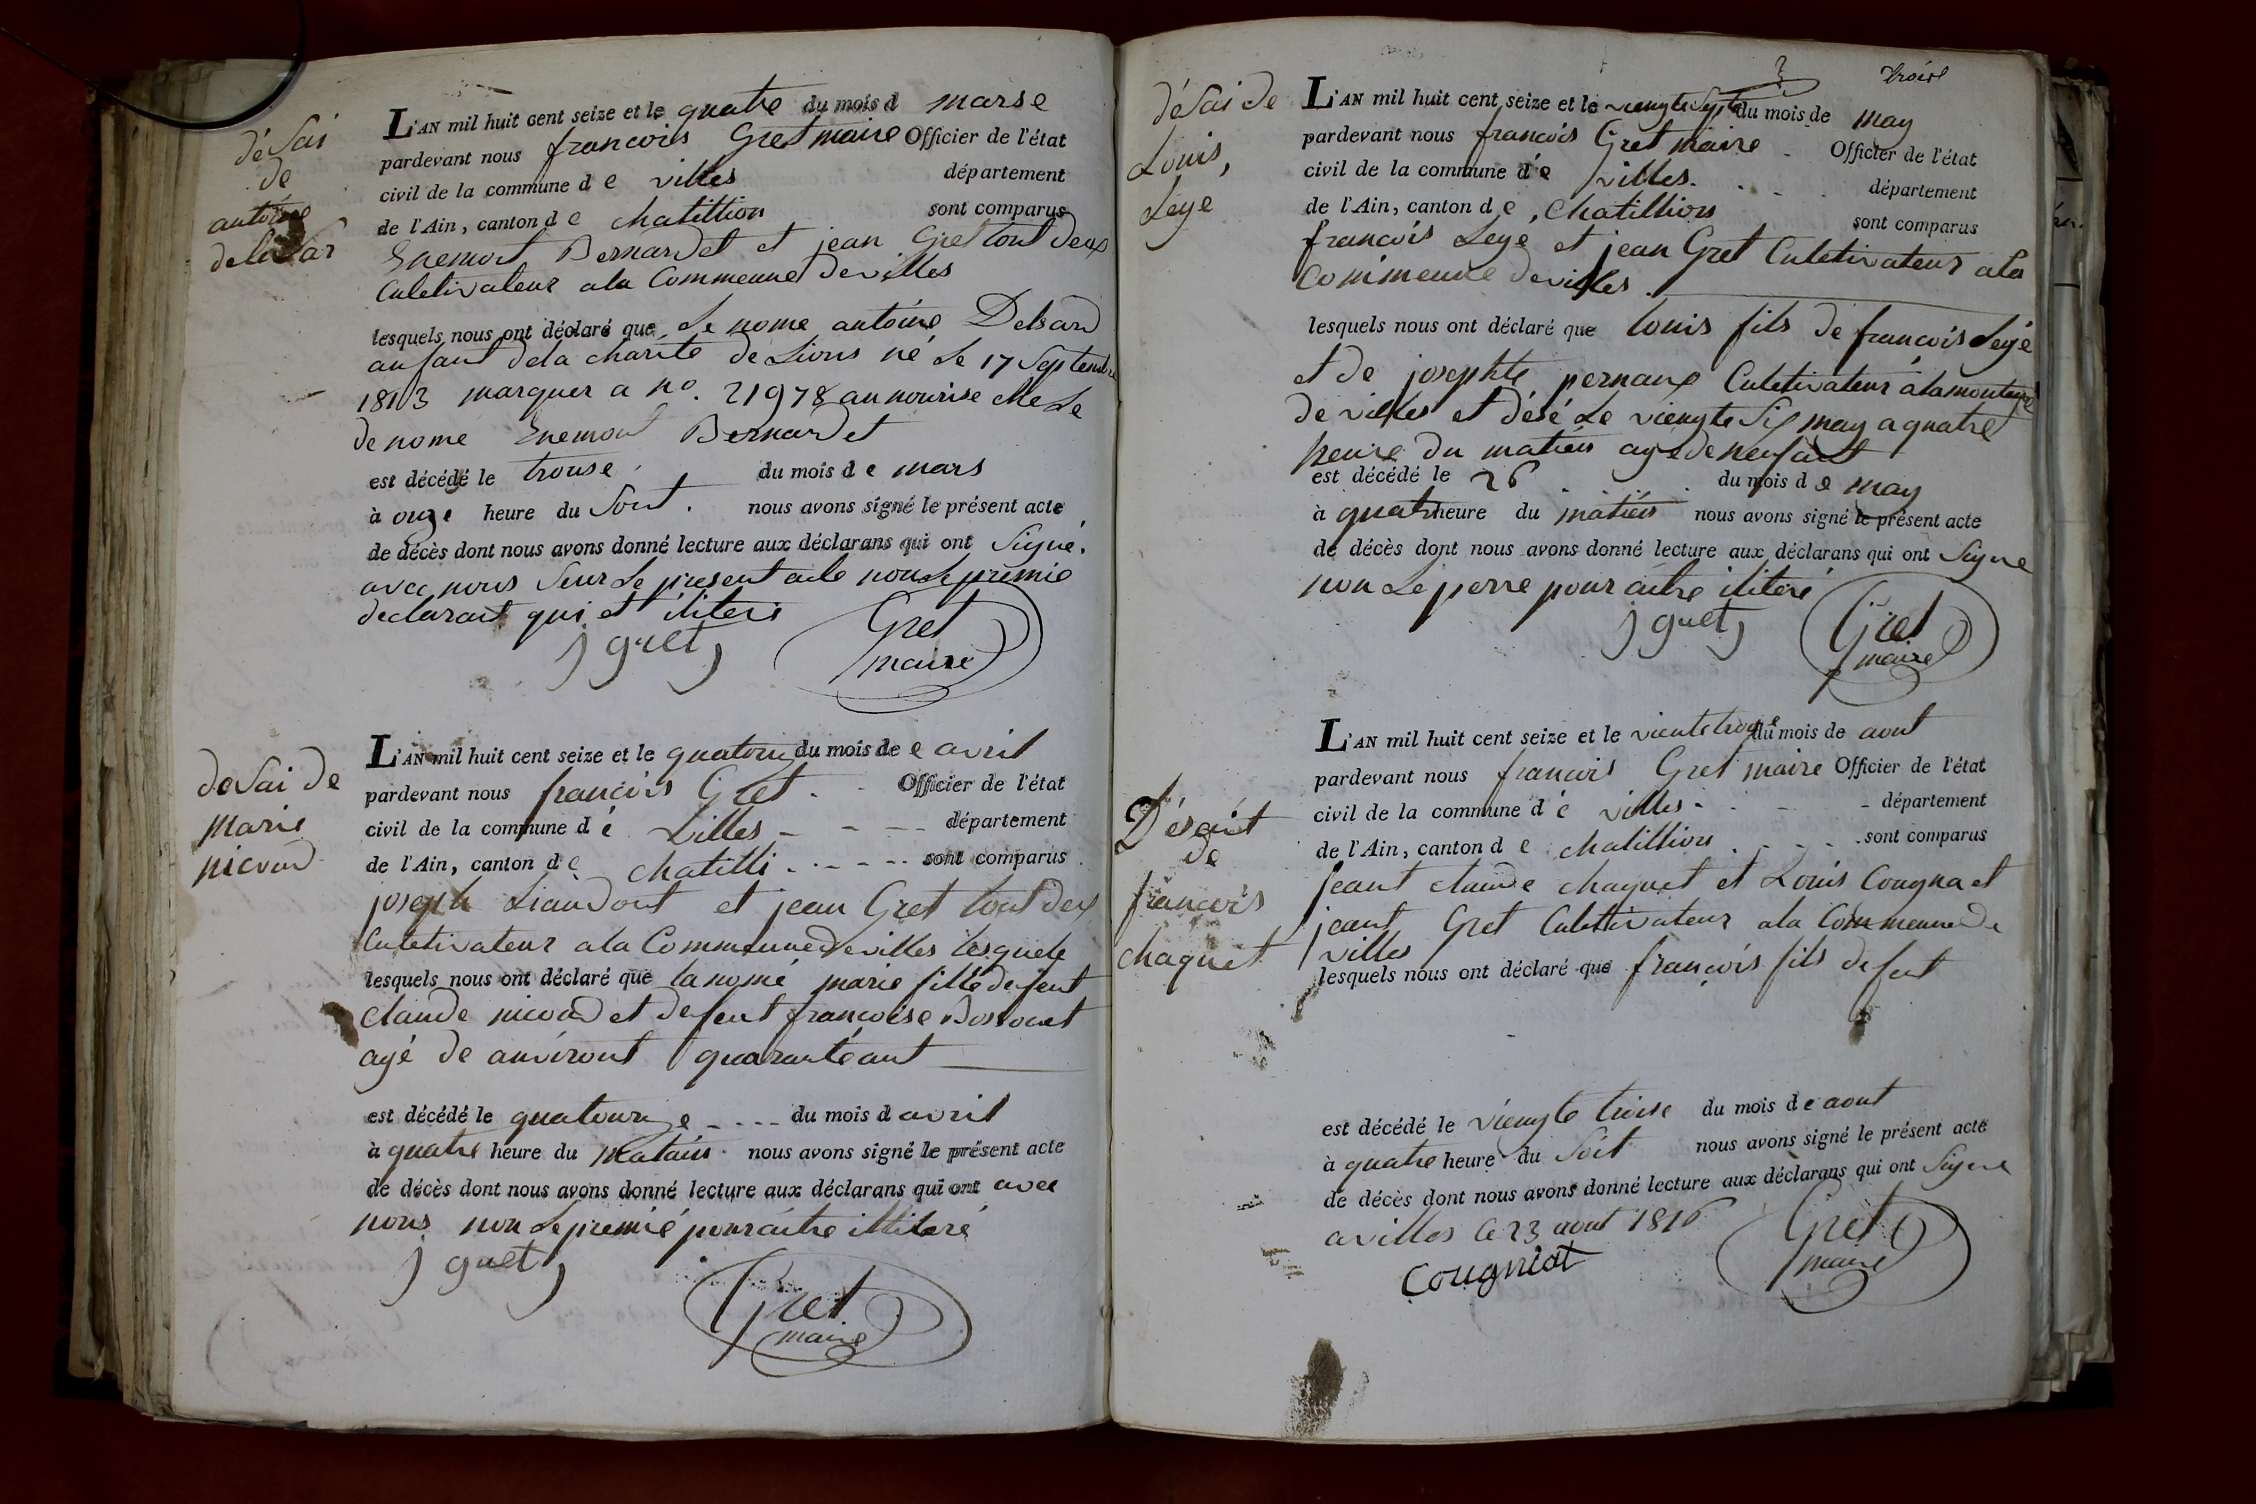 déSai
de
antoine
delsar
L'AN mil huit cent seize et le quatre du mois d marse
pardevant nous francois Gret maire Officier de l'état
civil de la commune d e villes département
de l'Ain, canton d e chatillion sont comparus
Enemont Bernardet et jean Gret tout deux
Culetivateur a la Commeune de villes
lesquels nous ont déclaré que Le nome antoine Delsard
anfant dela charité de Lions né Le 17 Septembre
1813 marquer a no. 21978 au nourise che Le
de nome Enemont Bernardet
est décédé le trouse du mois d e mars
à onze heure du Soit. nous avons signé le présent acte
de décès dont nous avons donné lecture aux déclarans qui ont Signé.
avec nous Seur Le present acte non Le premie
declarant qui et iliteri
j gret
Gret
maire
deSai de
Marie
nicoud
L'AN mil huit cent seize et le quatorze du mois de e avril
pardevant nous françois Gret - - Officier de l'état
civil de la commune d é Villes - - - - département
de l'Ain, canton d e chatilli - - - - sont comparus
joseph Liaudont et jean Gret tout dex
Culetivateur a la Commeune de villes lesquele
lesquels nous ont déclaré que la nomé marie fille de feut
claude nicoud et de feut francoise Bossonet
agé de anviront quarante ant
est décédé le quatourze - - - - du mois d avril
à quatre heure du Matain. nous avons signé le présent acte
de décès dont nous avons donné lecture aux déclarans qui ont avec
nous non Le premié pour aitre illiteré
j gret
Gret
maire
3
troise
déSai de
Louis,
Leye
L'AN mil huit cent seize et le viengte Sept du mois de may
pardevant nous francois Gret maire - Officier de l'état
civil de la commune d e villes. - - - département
de l'Ain, canton d e, chatillion sont comparus
francois Leye et jean Gret Culetivateur a la
Commeune de villes
lesquels nous ont déclaré que louis fils de francois Leyé
et de josephte pernaux Culetivateur a la monteigne
de villes et désé Le viengte Six may a quatre
heure du matien agé de neuf ant
est décédé le 26 du mois d e may
à quatre heure du matien nous avons signé le présent acte
de décès dont nous avons donné lecture aux déclarans qui ont Signe
non Le perre pour aitre iliteré
j gret
Gret
maire
Déseist
de
francois
chaquet
L'AN mil huit cent seize et le viente troye du mois de aout
pardevant nous francois Gret maire Officier de l'état
civil de la commune d é villes - - - - département
de l'Ain, canton d e chatillion - - - . sont comparus
jeant claude chaquet et Louis Cougna et
jeant Gret Culettivateur a la Commeune de
villes
lesquels nous ont déclaré que françois fils de feut
est décédé le viengte troise du mois d e aout
à quatre heure du Soit nous avons signé le présent acte
de décès dont nous avons donné lecture aux déclarans qui ont Signe
a villes le 23 aout 1816
Cougniat
Gret
maire